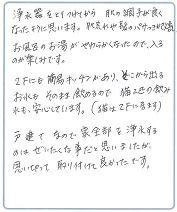 浄水器をとりつけてから 肌の調子が良く
なったように思います。肌荒れや髪のパサつきが改善
お風呂のお湯がやわらかくなったので、入る
のが楽しみです。
2Fにも簡易キッチンがあり、そこから出る
お水もそのまま飲めるので 猫2匹の飲み
水も、安心しています。(猫は2Fに居ます)
戸建て なので 家全部を浄水する
のは ぜいたくな事だと思いましたが、
思い切って 取り付けて良かったです。